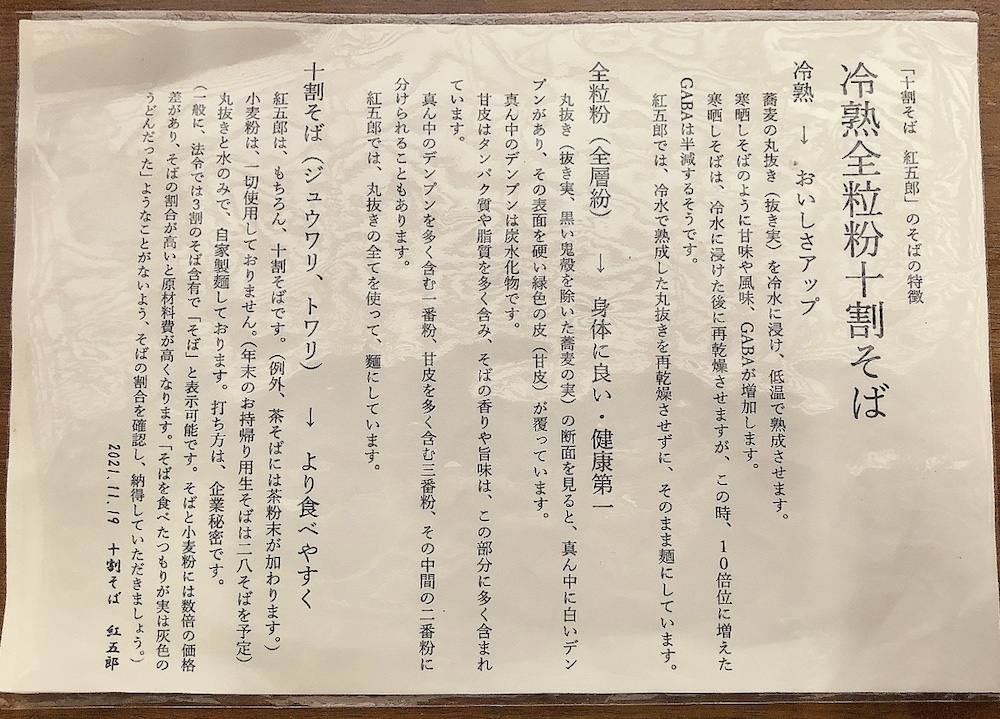 「十割そば　紅五郎」のそばの特徴
冷熟全粒粉十割そば
冷熟　→　おいしさアップ
蕎麦の丸抜き（抜き実）を冷水に浸け、低温で熟成させます。
寒晒しそばのように甘味や風味、GABAが増加します。
寒晒しそばは、冷水に浸けた後に再乾燥させますが、この時、10倍位に増えた
GABAは半減するそうです。
紅五郎では、冷水で熟成した丸抜きを再乾燥させずに、そのまま麺にしています。
全粒粉（全層紛）　→　身体に良い・健康第一
丸抜き（抜き実、黒い鬼殻を除いた蕎麦の実）の断面を見ると、真ん中に白いデン
プンがあり、その表面を硬い緑色の皮（甘皮）が覆っています。
真ん中のデンプンは炭水化物です。
甘皮はタンパク質や脂質を多く含み、そばの香りや旨味は、この部分に多く含まれ
ています。
真ん中のデンプンを多く含む一番粉、甘皮を多く含む三番粉、その中間の二番粉に
分けられることもあります。
紅五郎では、丸抜きの全てを使って、麺にしています。
十割そば（ジュウワリ、トワリ）　→　より食べやすく
紅五郎は、もちろん、十割そばです。（例外、茶そばには茶粉末が加わります。）
小麦粉は、一切使用しておりません。（年末のお持帰り用生そばは二八そばを予定）
丸抜きと水のみで、自家製麺しております。打ち方は、企業秘密です。
（一般に、法令では3割のそば含有で「そば」と表示可能です。そばと小麦粉には数倍の価格
差があり、そばの割合が高いと原材料費が高くなります。「そばを食べたつもりが実は灰色の
うどんだった」ようなことがないよう、そばの割合を確認し、納得していただきましょう。）
2021.11.19　十割そば　紅五郎